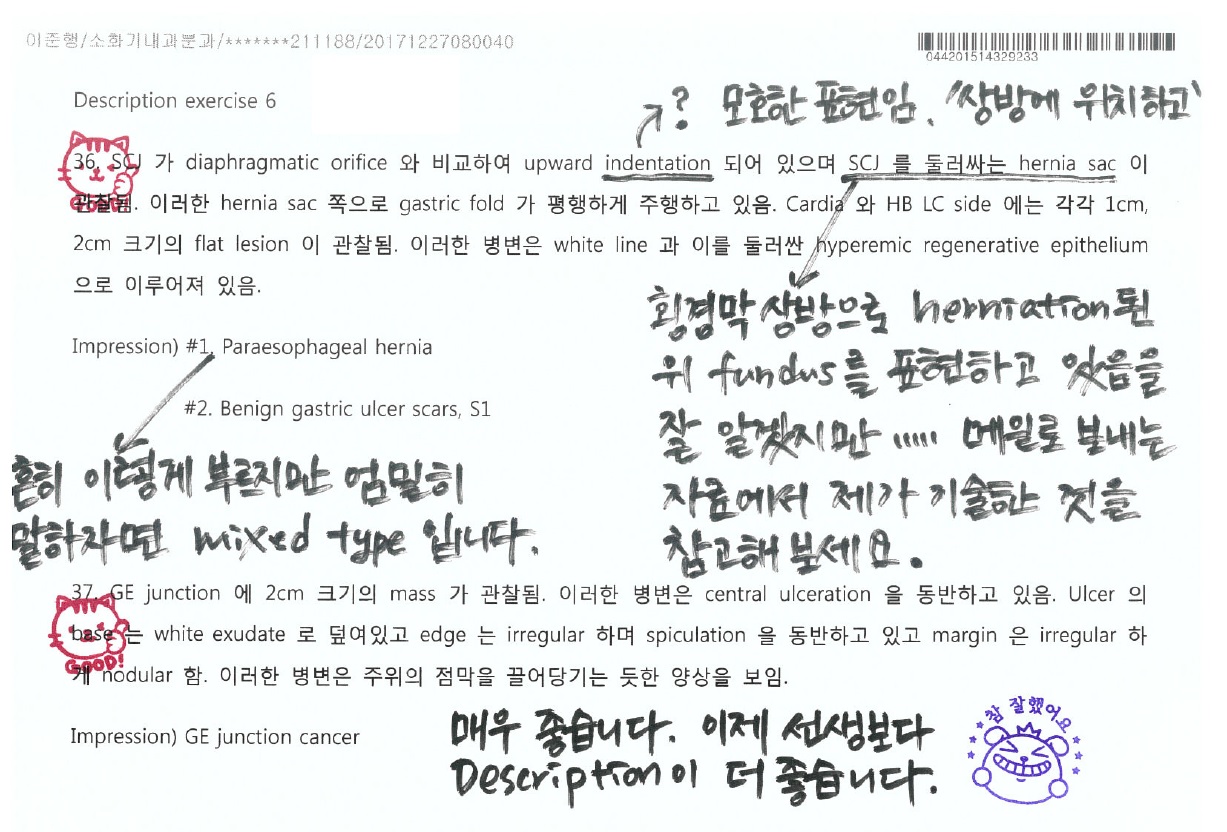 이준행/소화기내과분과/*******211188/20171227080040
044201514329233
Description exercise 6
? 모호한 표현임, '상방에 위치하고'
36. SCJ 가 diaphragmatic orifice 와 비교하여 upward indentation 되어 있으며 SCJ 를 둘러싸는 hernia sac 이
GOOD!
관찰됨. 이러한 hernia sac 쪽으로 gastric fold 가 평행하게 주행하고 있음. Cardia 와 HB LC side 에는 각각 1cm,
2cm 크기의 flat lesion 이 관찰됨. 이러한 병변은 white line 과 이를 둘러싼 hyperemic regenerative epithelium
으로 이루어져 있음.
횡경막 상방으로 herniation된
위 fundus를 표현하고 있음을
잘 알겠지만 ..... 메일로 보내는
자료에서 제가 기술한 것을
참고해 보세요.
Impression) #1. Paraesophageal hernia
#2. Benign gastric ulcer scars, S1
흔히 이렇게 부르지만 엄밀히
말하자면 mixed type 입니다.
37. GE junction 에 2cm 크기의 mass 가 관찰됨. 이러한 병변은 central ulceration 을 동반하고 있음. Ulcer 의
base 는 white exudate 로 덮여있고 edge 는 irregular 하며 spiculation 을 동반하고 있고 margin 은 irregular 하
GOOD!
게 nodular 함. 이러한 병변은 주위의 점막을 끌어당기는 듯한 양상을 보임.
Impression) GE junction cancer
매우 좋습니다. 이제 선생보다
Description이 더 좋습니다.
참 잘했어요